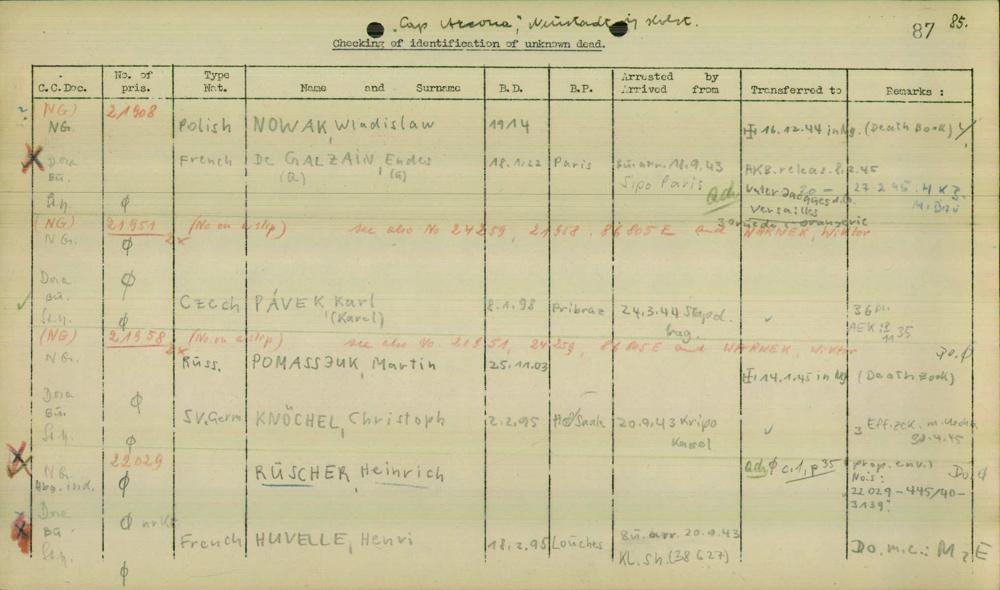 "Cap Arcona", Neustadt i/ Holst.
87 85.
Checking of identification of unknown dead.
C.C.Doc. No. of pris. Type Nat. Name and Surname B.D. B.P. Arrested by Arrived from Transferred to Remarks :
(NG) 21908
NG. Polish NOWAK, Wladislaw 1914 16.12.44 in Ng. (Death Book)
Dora French De GALZAIN, Endes 18.1.22 Paris Bu. arr. 18.9.43 HKB. releas. 8.2.45
Bu. (Q) (G) Sipo Paris 27.2.45. HKB
Adr. Vater Jacques d.G.
Versailles
St.y. ø
(NG) 21951 (No. on a slip) see also No 24259, 21958, 86805E and WARNEK, Wiktor
NG. ø
Dora ø
Bu. Czech PÁVEK, Karl 8.1.98 Pribraz 24.3.44 Stapol. 36
St.y. ø (Karel) Prag. AEK 35
(NG) 21958 (No. on a slip) see also No. 21951, 24259, 86805E and WARNEK, Wiktor
Do. ø
NG. Russ. POMASSJUK, Martin 25.11.03 14.1.45 in Ng (Death Book)
Dora ø
Bu. SV.Germ KNÖCHEL, Christoph 2.2.95 Hof/Saale 20.9.43 Kripo Eff.zek.
St.y. ø Kassel 30.4.45
22029
NG. RÜSCHER, Heinrich adr ø c.1, p 35 prop. env. Do. ø
Abg. ind. ø Nois:
22029-445/40-
3139.
Dora ø
Bu. French HUVELLE, Henri 18.2.95 Louches Bu. arr. 20.9.43 Do. m.c.: M 2 E
St.y. ø KL. Sh. (38627)